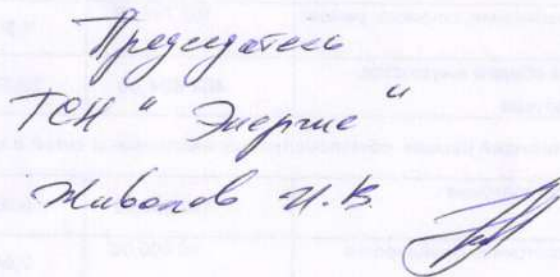 Председатель
ТСН "Энергия"
Живолов И.В.